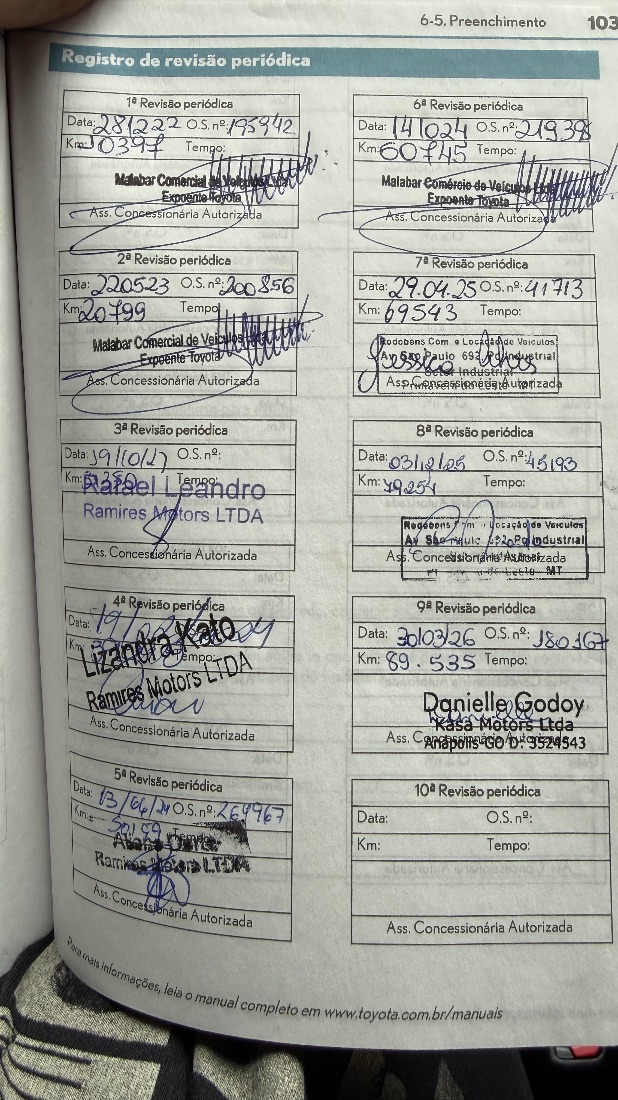 6-5. Preenchimento 103
Registro de revisão periódica
1ª Revisão periódica
Data: 281222 O.S. nº: 195942
Km: 10397 Tempo:
Malabar Comercial de Veículos Ltda
Expoente Toyota
Ass. Concessionária Autorizada
2ª Revisão periódica
Data: 220523 O.S. nº: 200856
Km: 20799 Tempo:
Malabar Comercial de Veículos
Expoente Toyota
Ass. Concessionária Autorizada
3ª Revisão periódica
Data: 19/10/23 O.S. nº:
Km: Tempo:
Rafael Leandro
Ramires Motors LTDA
Ass. Concessionária Autorizada
4ª Revisão periódica
Data: 19/
Km: Tempo:
Lizandra Kato
Ramires Motors LTDA
Ass. Concessionária Autorizada
5ª Revisão periódica
Data: 13/06/24 O.S. nº: 264967
Km: Tempo:
Ramires Motors LTDA
Ass. Concessionária Autorizada
6ª Revisão periódica
Data: 141024 O.S. nº: 219398
Km: 60745 Tempo:
Malabar Comércio de Veículos Ltda
Expoente Toyota
Ass. Concessionária Autorizada
7ª Revisão periódica
Data: 29.04.25 O.S. nº: 41713
Km: 69543 Tempo:
Rodobens Com e Locação de Veículos
Av São Paulo 692 Pq Industrial
Setor Industrial
Primavera do Leste MT
Ass. Concessionária Autorizada
8ª Revisão periódica
Data: 03/12/25 O.S. nº: 45193
Km: 79254 Tempo:
Rodobens Com e Locação de Veículos
Av São Paulo 692 Pq Industrial
Ass. Concessionária Autorizada
Leste MT
9ª Revisão periódica
Data: 30/03/26 O.S. nº: 180167
Km: 89.535 Tempo:
Danielle Godoy
Kasa Motors Ltda
Ass. Concessionária Autorizada
Anápolis-GO D: 3524543
10ª Revisão periódica
Data: O.S. nº:
Km: Tempo:
Ass. Concessionária Autorizada
Para mais informações, leia o manual completo em www.toyota.com.br/manuais